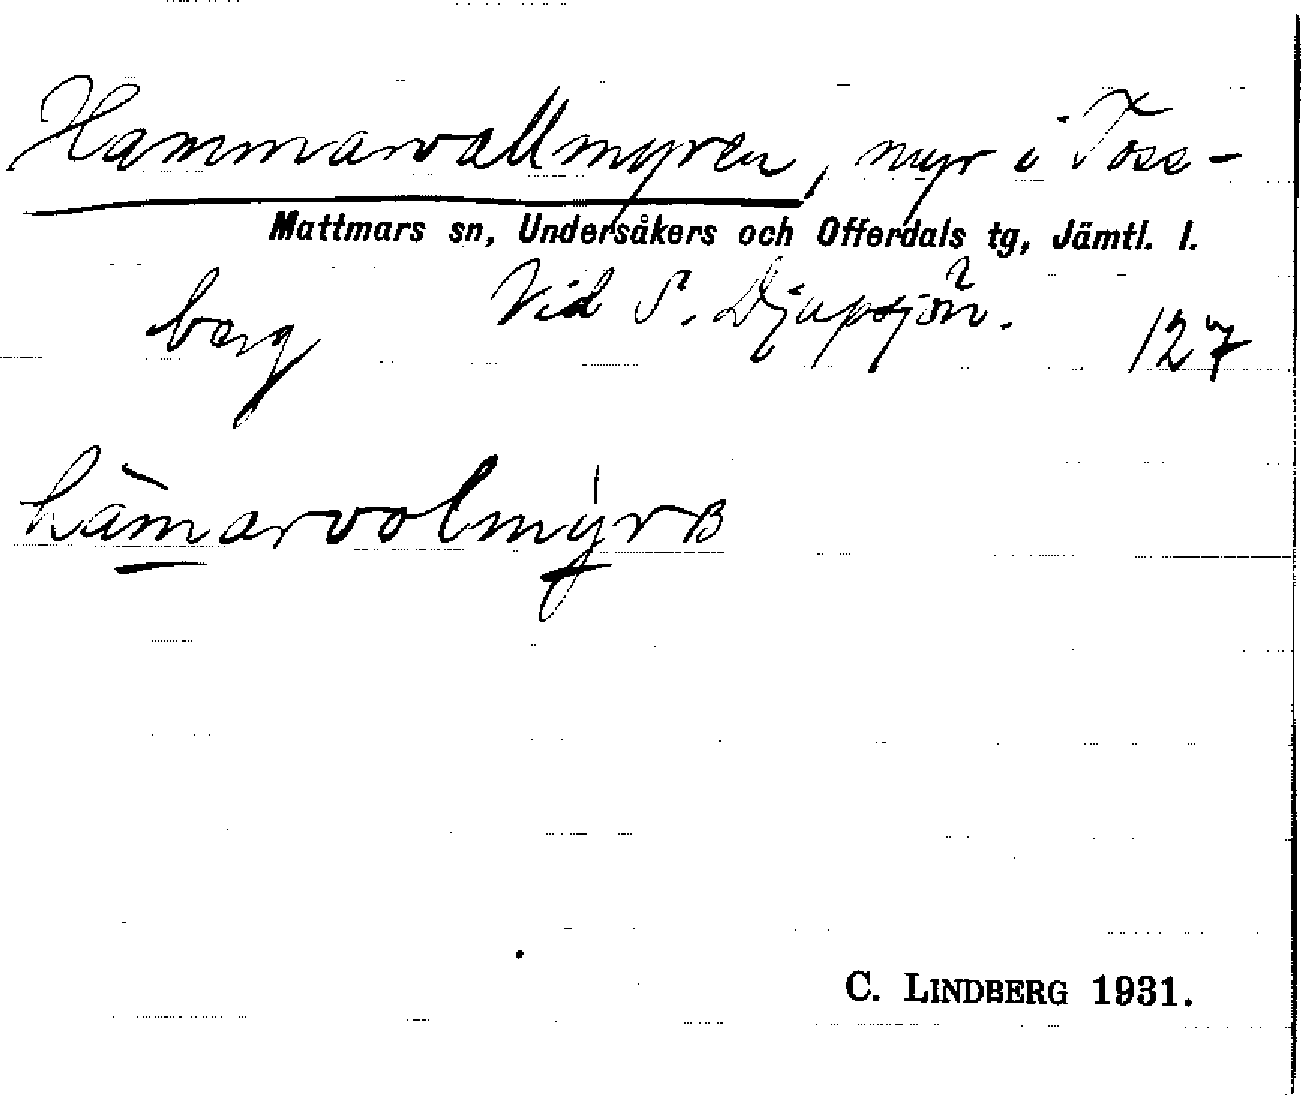 Hammarvallmyren, myr i Toss-
Mattmars sn, Undersåkers och Offerdals tg, Jämtl. l.
berg Vid S. Djupsjön. 127
hàmarvolmýrʙ
C. LINDBERG 1931.